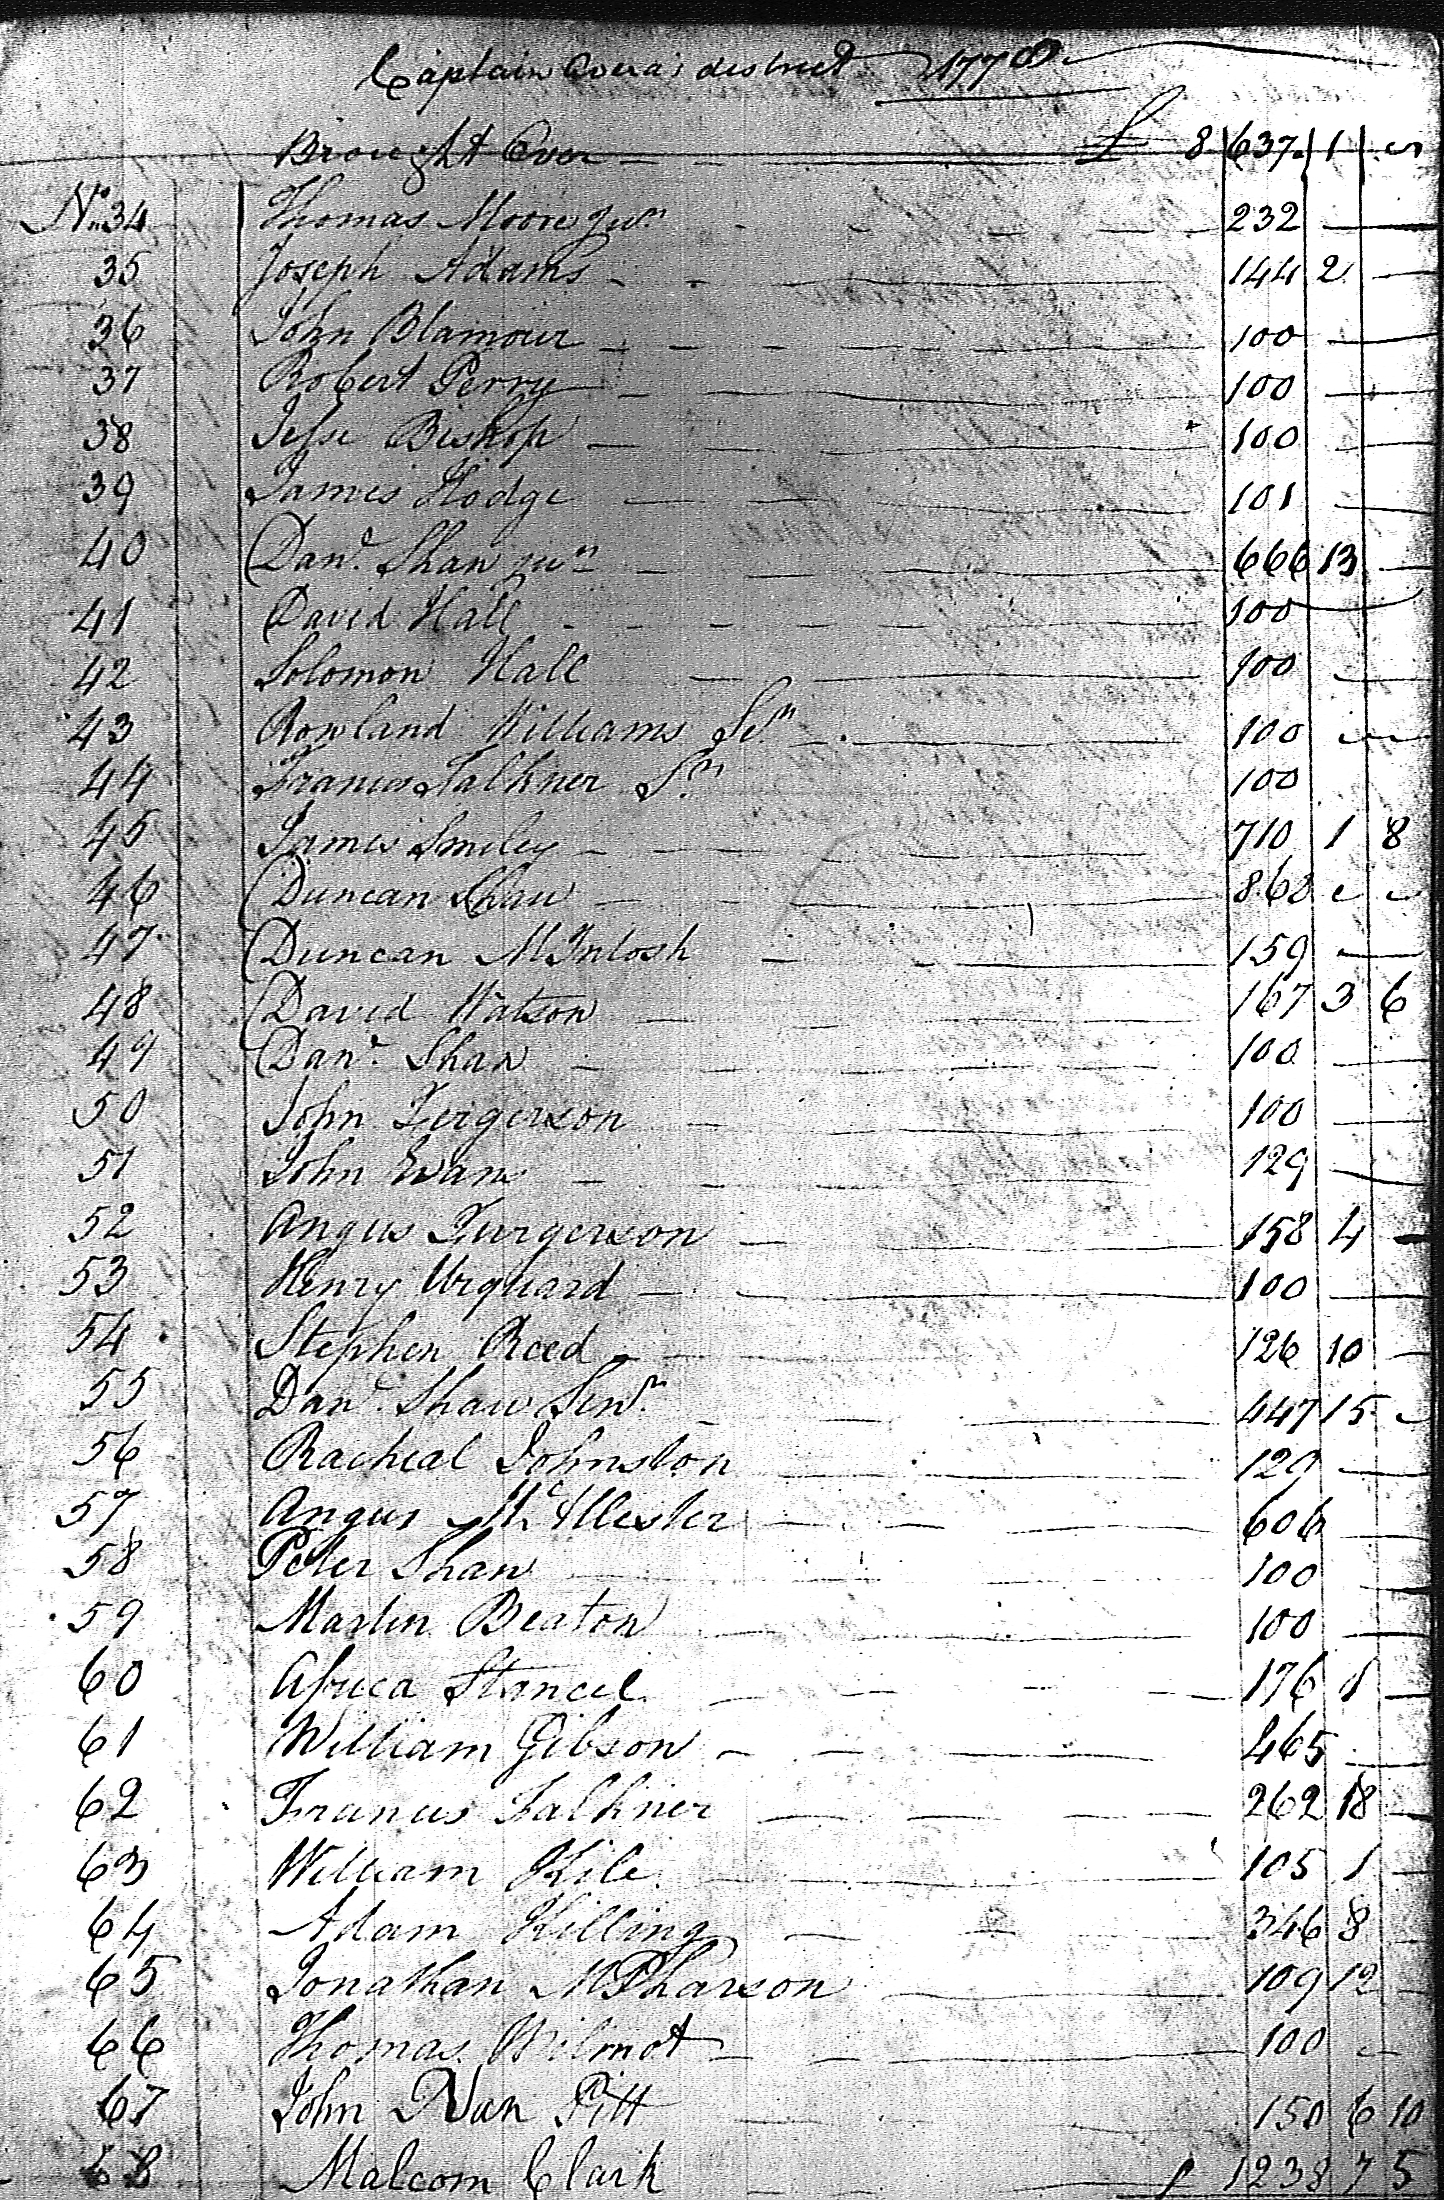 Captain district 1778
Brought Over £ 8637 1
No. 34 Thomas Moore Jun 232
35 Joseph Adams 144 2
36 John Blamour 100
37 Robert Perry 100
38 Jesse Bishop 100
39 James Hodge 101
40 Dan. Shaw jun 666 13
41 David Hall 100
42 Solomon Hall 100
43 Rowland Williams Sn 100
44 Francis Falkner Sn 100
45 James Smiley 710 1 8
46 Duncan Shaw 868
47 Duncan McIntosh 159
48 David Watson 167 3 6
49 Dan. Shaw 100
50 John Fergerson 100
51 John Evans 129
52 Angus Furgerson 158 4
53 Henry Urquard 100
54 Stephen Reed 126 10
55 Dan. Shaw Senr 447 15
56 Racheal Johnston 129
57 Angus Mc Allester 606
58 Peter Shaw 100
59 Martin Beaton 100
60 Africa Stancel 176 1
61 William Gibson 465
62 Francis Falkner 262 18
63 William Kile 105 1
64 Adam Killing 346 8
65 Jonathan McPharson 109 12
66 Thomas Wilmot 100
67 John Van Pitt 150 6 10
68 Malcom Clark 1238 7 5